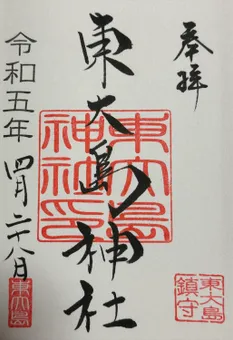 奉拝
東大島神社
東大島
神社印
令和五年 四月二十八日
東大島
鎮守
東大島